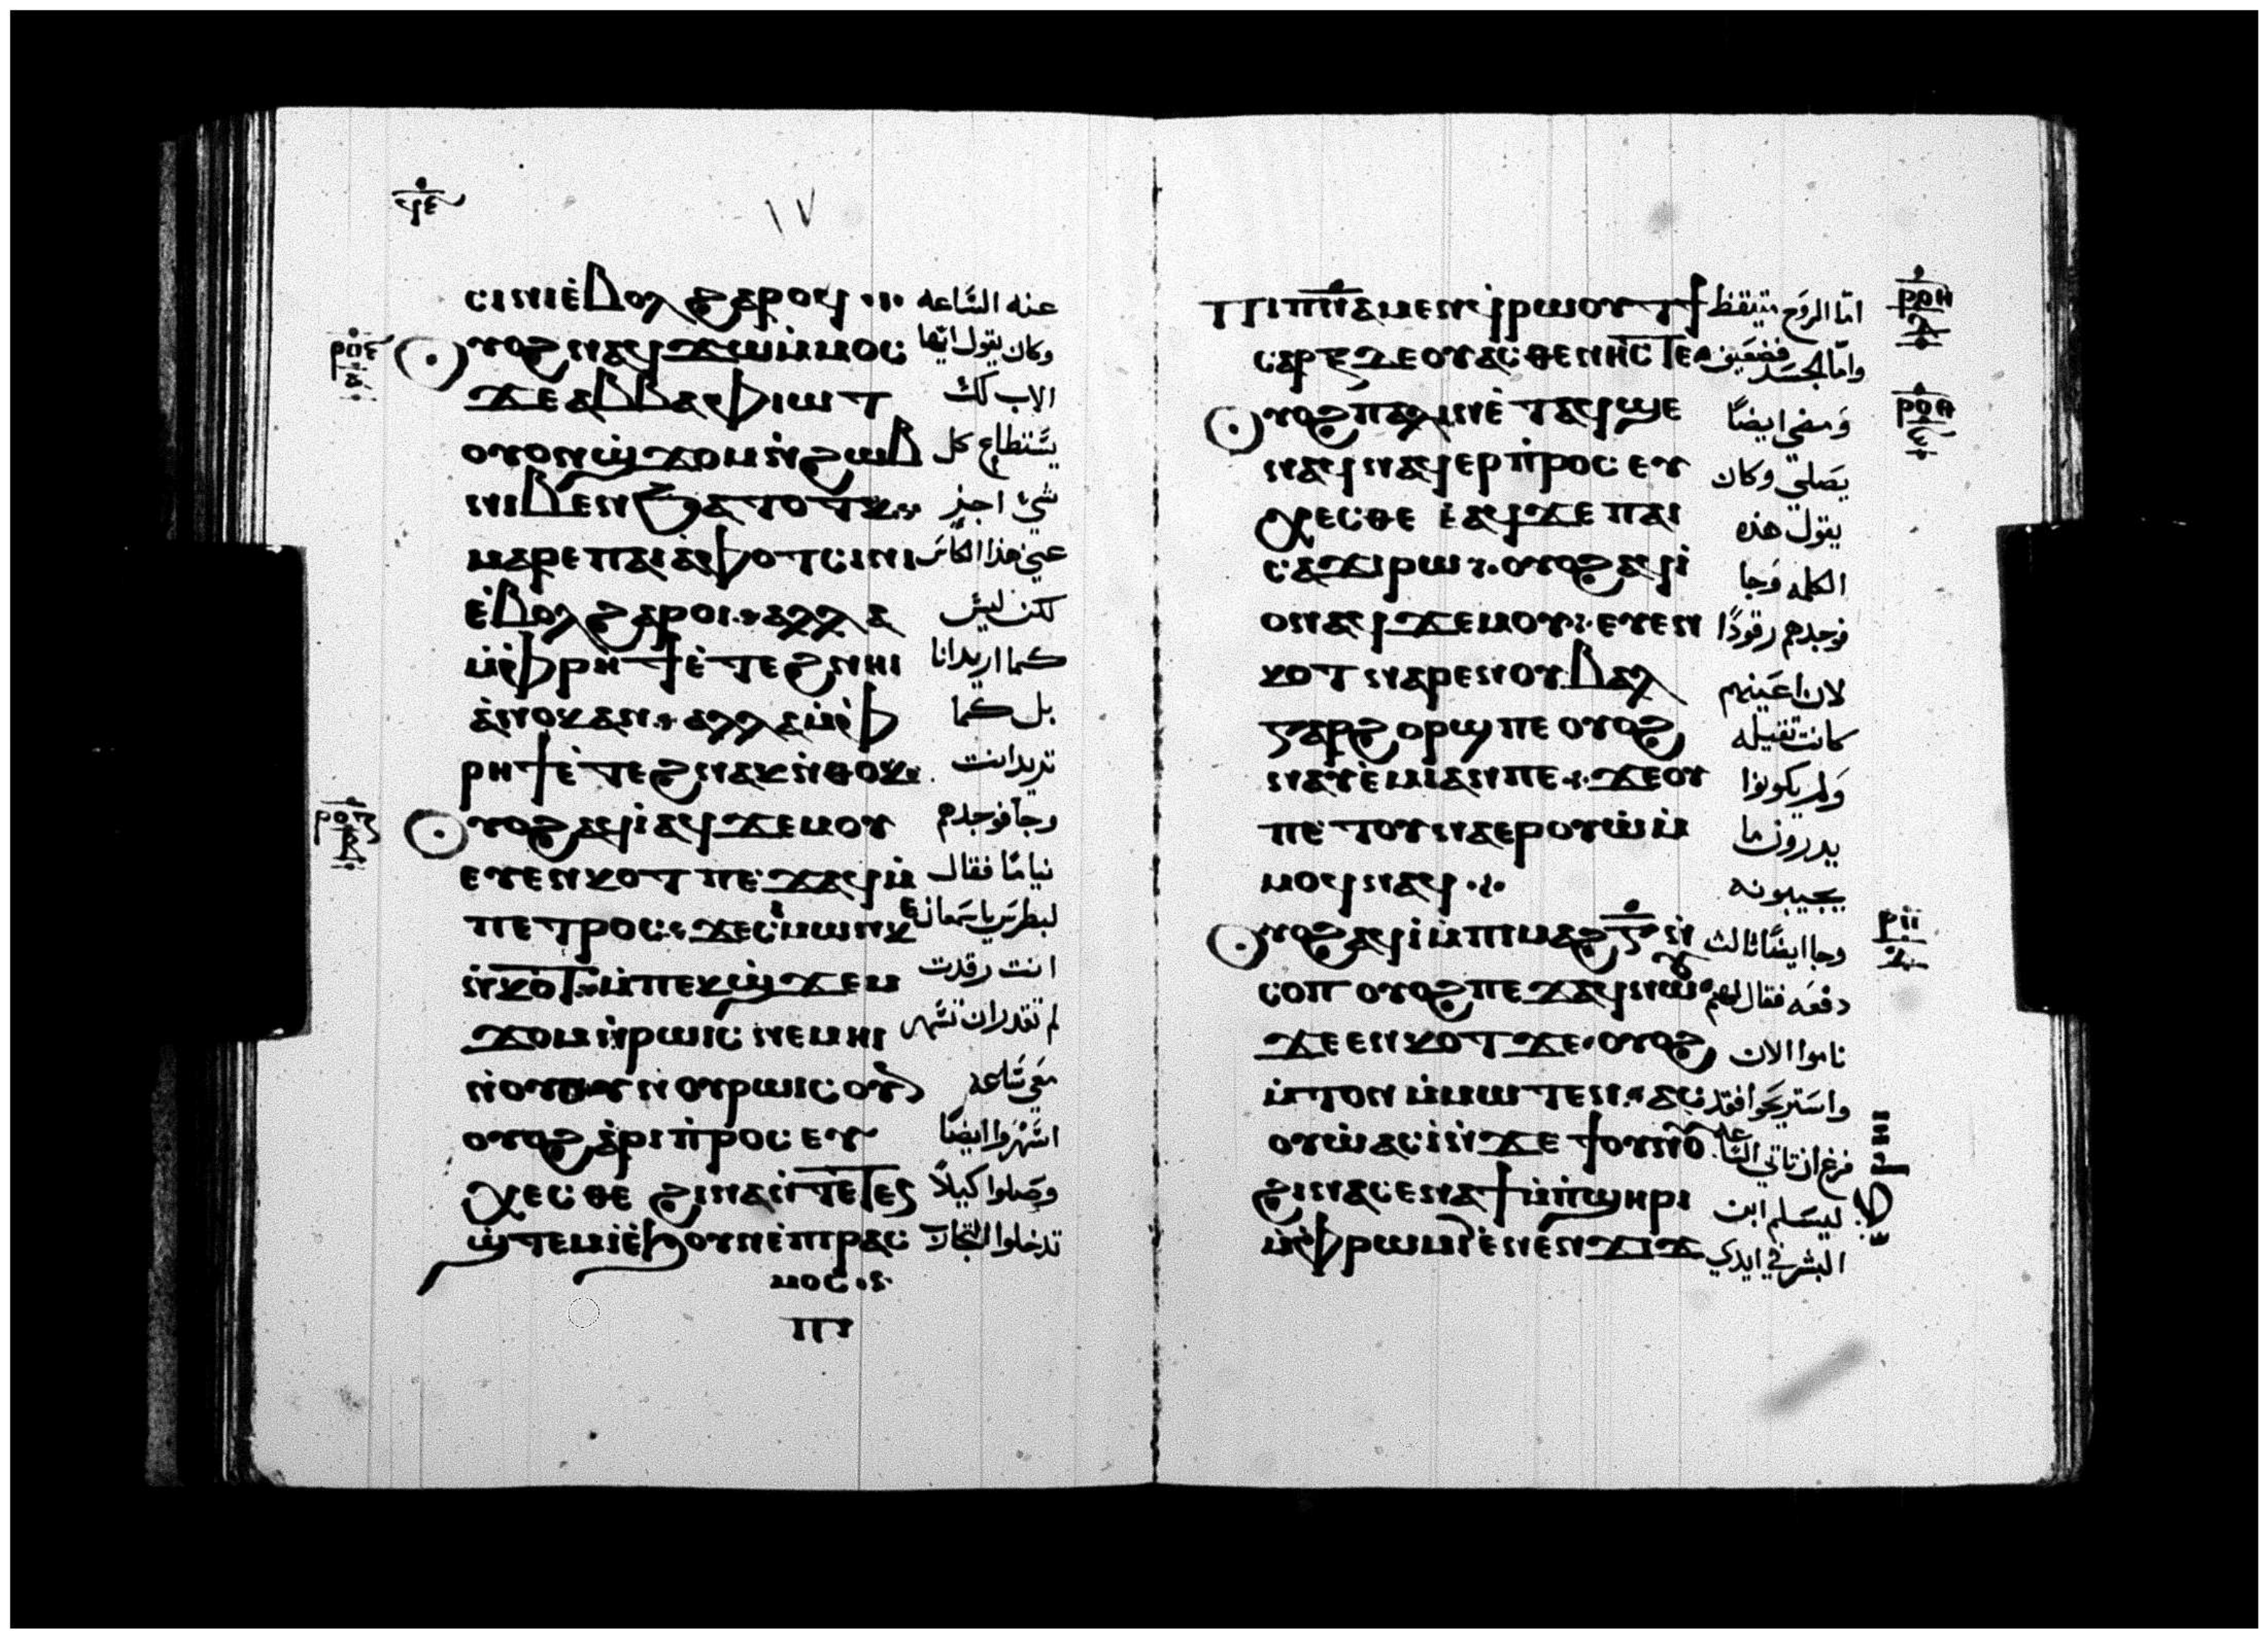 ϥⲉ
١٧
ⲥⲓⲛⲓⲉ̀ⲃⲟⲗ ϩⲁⲣⲟϥ عنه الساعه
ⲣⲟⲉ
ⲁ
ⲟⲩⲟϩ ⲛⲁϥϫⲱ ⲙ̀ⲙⲟⲥ وكان يقول ايها
ϫⲉ ⲁⲃⲃⲁ ⲫⲓⲱⲧ الاب لك
ⲟⲩⲟⲛ ϣ̀ϫⲟⲙ ⲛ̀ϩⲱⲃ يستطاع كل
ⲛⲓⲃⲉⲛ ϧⲁⲧⲟⲧⲕ شي اجيز
ⲙⲁⲣⲉ ⲡⲁⲓⲁ̀ⲫⲟⲧ ⲥⲓⲛⲓ عني هذا الكاس
ⲉ̀ⲃⲟⲗ ϩⲁⲣⲟⲓ ⲁⲗⲗⲁ لكن ليس
ⲙ̀ⲫⲣⲏϯ ⲉ̀ⲧⲉϩⲛⲏⲓ كما اريد انا
ⲁ̀ⲛⲟⲕ ⲁⲛ ⲁⲗⲗⲁ ⲙ̀ⲫ بل كما
ⲣⲏϯ ⲉ̀ⲧⲉϩⲛⲁⲕ ⲛ̀ⲑⲟⲕ تريد انت
ⲟⲩⲟϩ ⲁϥⲓ̀ ⲁϥϫⲉⲙⲟⲩ وجا فوجدهم
ⲉⲩⲉⲛⲕⲟⲧ ⲡⲉϫⲁϥ ⲙ̀ نياما فقال
ⲡⲉⲧⲣⲟⲥ ϫⲉ ⲥⲓⲙⲱⲛ ⲕ لبطرس ياسمعان
ⲛ̀ⲕⲟⲧ ⲙ̀ⲡⲉⲕϣ̀ϫⲉⲙ انت رقدت
ϫⲟⲙ ⲛ̀ⲣⲱⲓⲥ ⲛⲉⲙⲏⲓ لم تقدر ان تسهر
ⲛ̀ⲟⲩⲟⲩⲛⲟⲩ ⲣⲱⲓⲥ ⲟⲩⲛ معي ساعه
ⲟⲩⲟϩ ⲁ̀ⲣⲓⲡ̀ⲣⲟⲥⲉⲩ اسهروا ايضا
ⲭⲉⲥⲑⲉ ϩⲓⲛⲁ ⲛ̀ⲧⲉⲧⲉⲛ وصلوا كيلا
ϣ̀ⲧⲉⲙⲓ̀ ⲉ̀ϧⲟⲩⲛ ⲉ̀ⲡⲓⲣⲁⲥ تدخلوا التجارب
ⲙⲟⲥ
ⲡⲓ
ⲣⲟⲏ
ⲇ
ⲡⲓⲡⲛⲁ ⲙⲉⲛ ϥⲣⲱⲟⲩⲧϥ اما الروح متيقظ
ⲥⲁⲣⲝ ⲇⲉ ⲟⲩⲁⲥⲑⲉⲛⲏⲥ ⲧⲉ واما الجسد فضعيف
ⲣⲟⲑ
ⲟⲩⲟϩ ⲡⲁⲗⲓⲛ ⲉ̀ⲧⲁϥϣⲉ ومضى ايضا
ⲛⲁϥ ⲛⲁϥⲉⲣⲡ̀ⲣⲟⲥⲉⲩ يصلي وكان
ⲭⲉⲥⲑⲉ ⲉ̀ⲁϥϫⲉ ⲡⲁⲓ يقول هذه
ⲥⲁϫⲓ ⲣⲱ ⲟⲩⲟϩ ⲁϥⲓ̀ الكلمه وجا
ⲟⲛ ⲁϥϫⲉⲙⲟⲩ ⲉⲩⲉⲛ فوجدهم رقودا
ⲕⲟⲧ ⲛⲁⲣⲉ ⲛⲟⲩⲃⲁⲗ لان اعينهم
ⲅⲁⲣ ϩⲟⲣϣ ⲡⲉ ⲟⲩⲟϩ كانت ثقيله
ⲛⲁⲩⲉ̀ⲙⲓ ⲁⲛ ⲡⲉ ϫⲉ ⲟⲩ ولم يكونوا
ⲡⲉⲧⲟⲩⲛⲁⲉⲣⲟⲩⲱ̀ ⲙ̀ يدرون ما
ⲙⲟϥ ⲛⲁϥ يجيبونه
ⲣⲡ
ⲟⲩⲟϩ ⲁϥⲓ̀ ⲙ̀ⲡⲓⲙⲁϩ ⲅ̄ ⲛ̀ وجا ايضا ثالث
ⲥⲟⲡ ⲟⲩⲟϩ ⲡⲉϫⲁϥ ⲛⲱⲟⲩ دفعه فقال لهم
ϫⲉ ⲉⲛⲕⲟⲧ ϫⲉ ⲟⲩⲟϩ ناموا الان
ⲙ̀ⲧⲟⲛ ⲙ̀ⲙⲱⲧⲉⲛ ⲁⲥ واستريحوا فقد
ⲟⲩⲱ ⲁⲥⲓ̀ ⲛ̀ϫⲉ ϯⲟⲩⲛⲟⲩ فرغ ان تاتي الساعه
ϩⲓⲛⲁ ⲥⲉⲛⲁϯ ⲙ̀ⲡ̀ϣⲏⲣⲓ ليسلم ابن
ⲙ̀ⲫⲣⲱⲙⲓ ⲉ̀ⲛⲉⲛϫⲓϫ البشر في ايدي